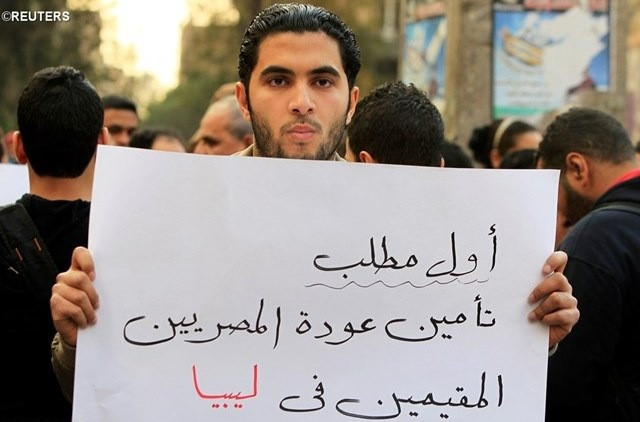 ©REUTERS
أول مطلب
تأمين عودة المصريين
المقيمين فى ليبيا